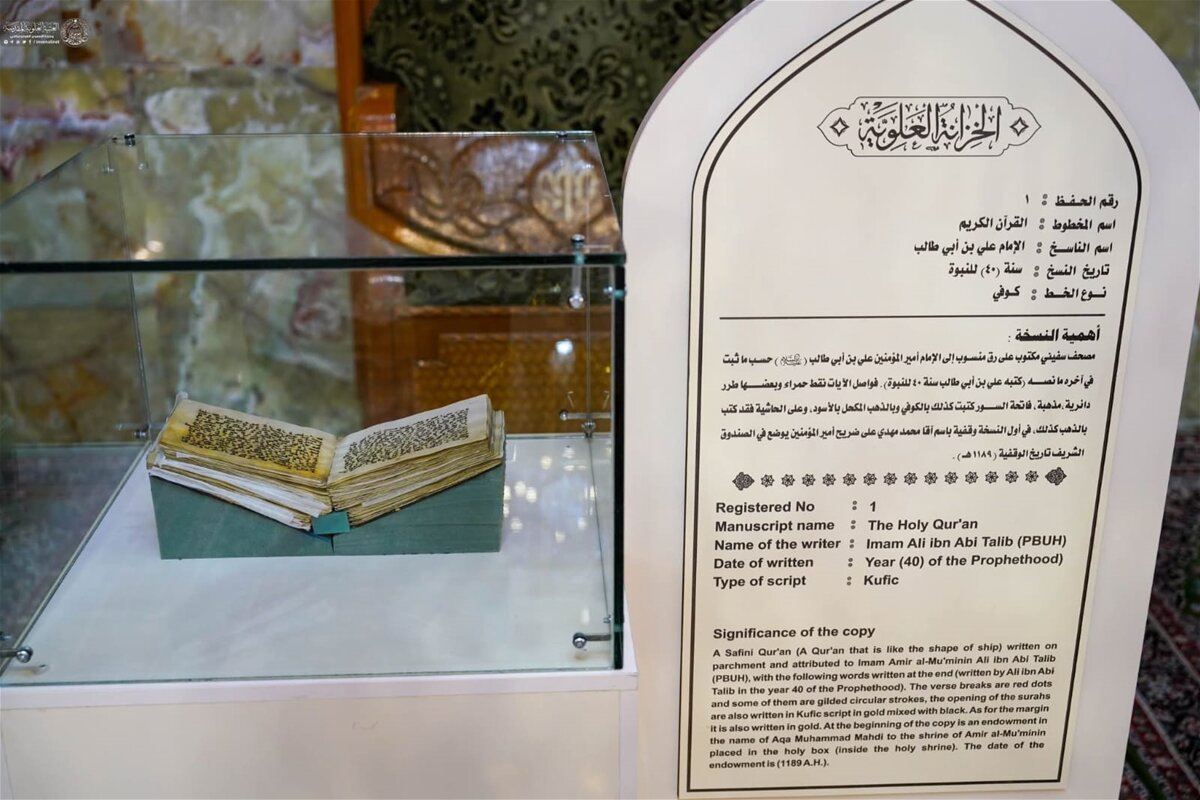 العتبة العلوية المقدسة
الخزانة العلوية
رقم الحفظ : ١
اسم المخطوط : القرآن الكريم
اسم الناسخ : الإمام علي بن أبي طالب
تاريخ النسخ : سنة (٤٠) للنبوة
نوع الخط : كوفي
أهمية النسخة :
مصحف سفيني مكتوب على رق منسوب إلى الإمام أمير المؤمنين علي بن أبي طالب () حسب ما ثبت
في آخره ما نصه (كتبه علي بن أبي طالب سنة ٤٠ للنبوة). فواصل الآيات نقط حمراء وبعضها طرر
دائرية مذهبة، فاتحة السور كتبت كذلك بالكوفي وبالذهب المكحل بالأسود، وعلى الحاشية فقد كتب
بالذهب كذلك، في أول النسخة وقفية باسم آقا محمد مهدي على ضريح أمير المؤمنين يوضع في الصندوق
الشريف تاريخ الوقفية (١١٨٩هـ).
Registered No : 1
Manuscript name : The Holy Qur'an
Name of the writer : Imam Ali ibn Abi Talib (PBUH)
Date of written : Year (40) of the Prophethood)
Type of script : Kufic
Significance of the copy
A Safini Qur'an (A Qur'an that is like the shape of ship) written on
parchment and attributed to Imam Amir al-Mu'minin Ali ibn Abi Talib
(PBUH), with the following words written at the end (written by Ali ibn Abi
Talib in the year 40 of the Prophethood). The verse breaks are red dots
and some of them are gilded circular strokes, the opening of the surahs
are also written in Kufic script in gold mixed with black. As for the margin
it is also written in gold. At the beginning of the copy is an endowment in
the name of Aqa Muhammad Mahdi to the shrine of Amir al-Mu'minin
placed in the holy box (inside the holy shrine). The date of the
endowment is (1189 A.H.).